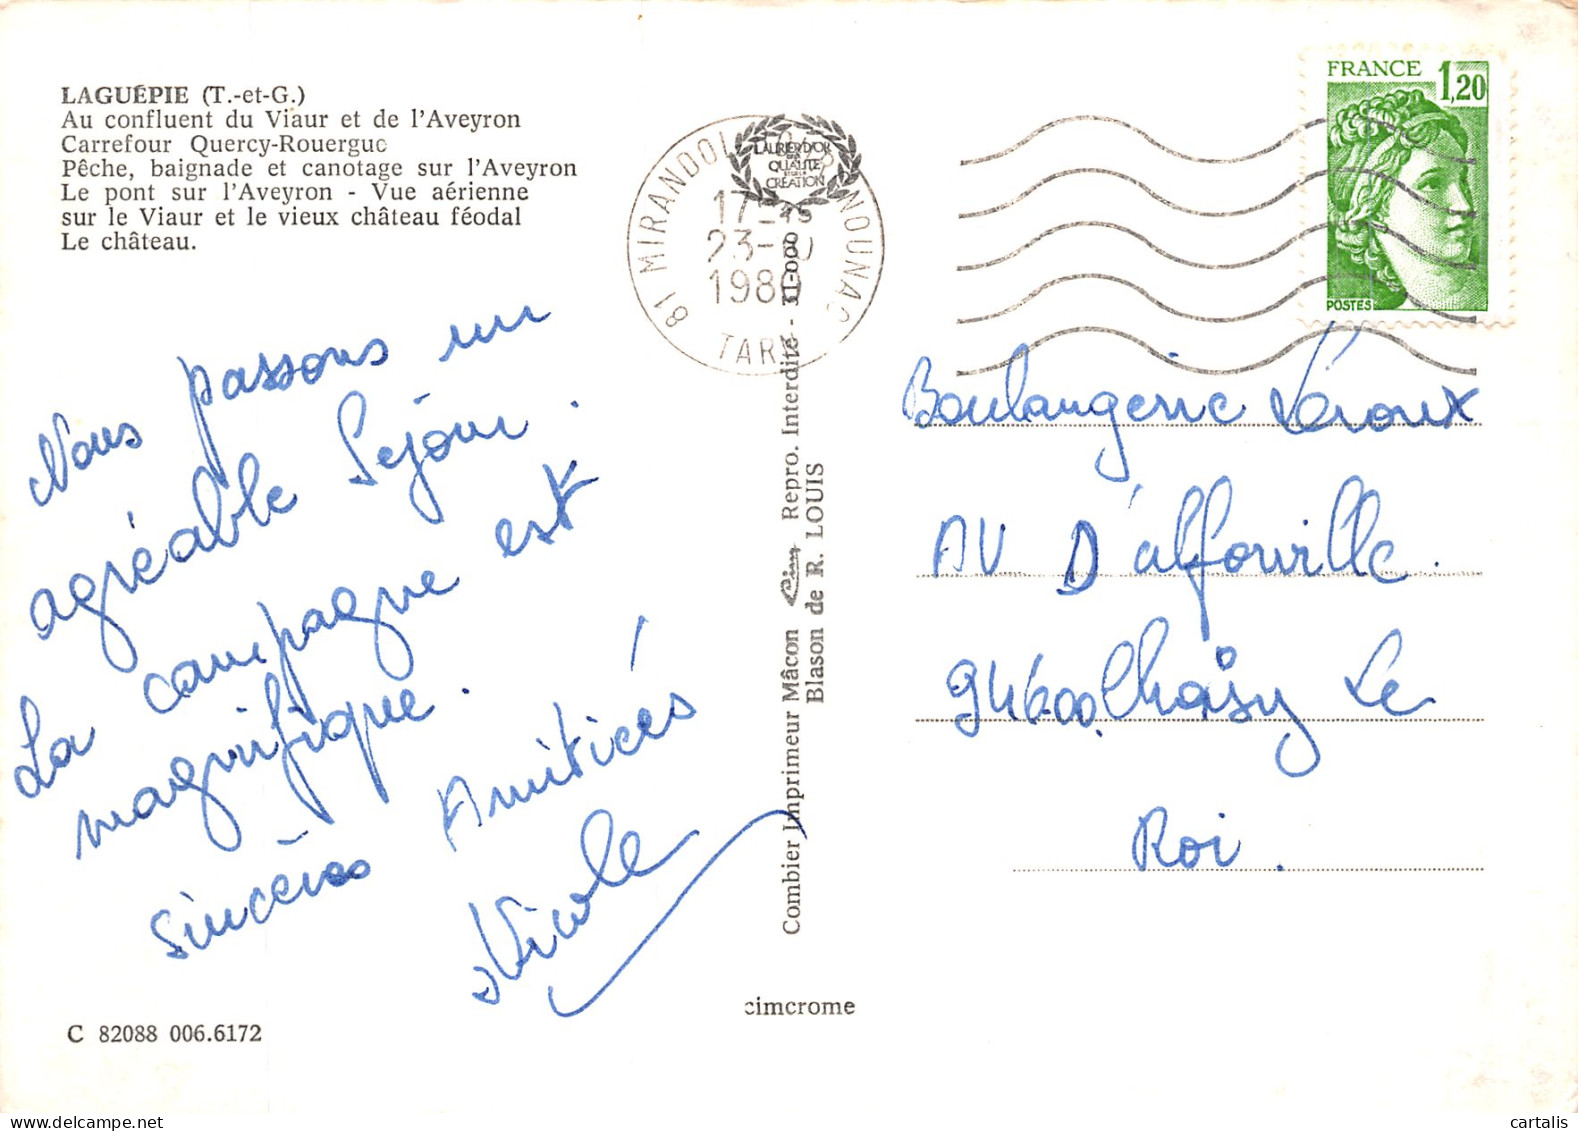 LAGUÉPIE (T.-et-G.)
Au confluent du Viaur et de l'Aveyron
Carrefour Quercy-Rouergue
Pêche, baignade et canotage sur l'Aveyron
Le pont sur l'Aveyron - Vue aérienne
sur le Viaur et le vieux château féodal
Le château.
Nous passons un
agréable Séjour.
La campagne est
magnifique.
sincères Amitiées
Nicole
C 82088 006.6172
81 MIRANDOL
NOUNAC
TARN
23-
1980
LAURIER D'OR
DE LA
QUALITÉ
ET DE LA
CRÉATION
Combier Imprimeur Mâcon Cim Repro. Interdite - II-000
Blason de R. LOUIS
cimcrome
FRANCE 1,20
POSTES
Boulangerie Léroux
AV D'alforville.
94600 Choisy Le
Roi.
cartalis